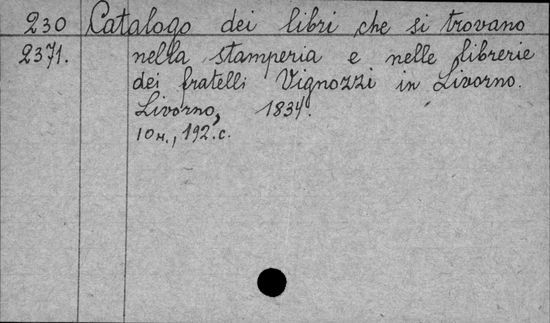 230 Catalogo dei libri che si trovano
2371. nella stamperia e nelle librerie
dei fratelli Vignozzi in Livorno.
Livorno, 1834.
10 н., 192. с.